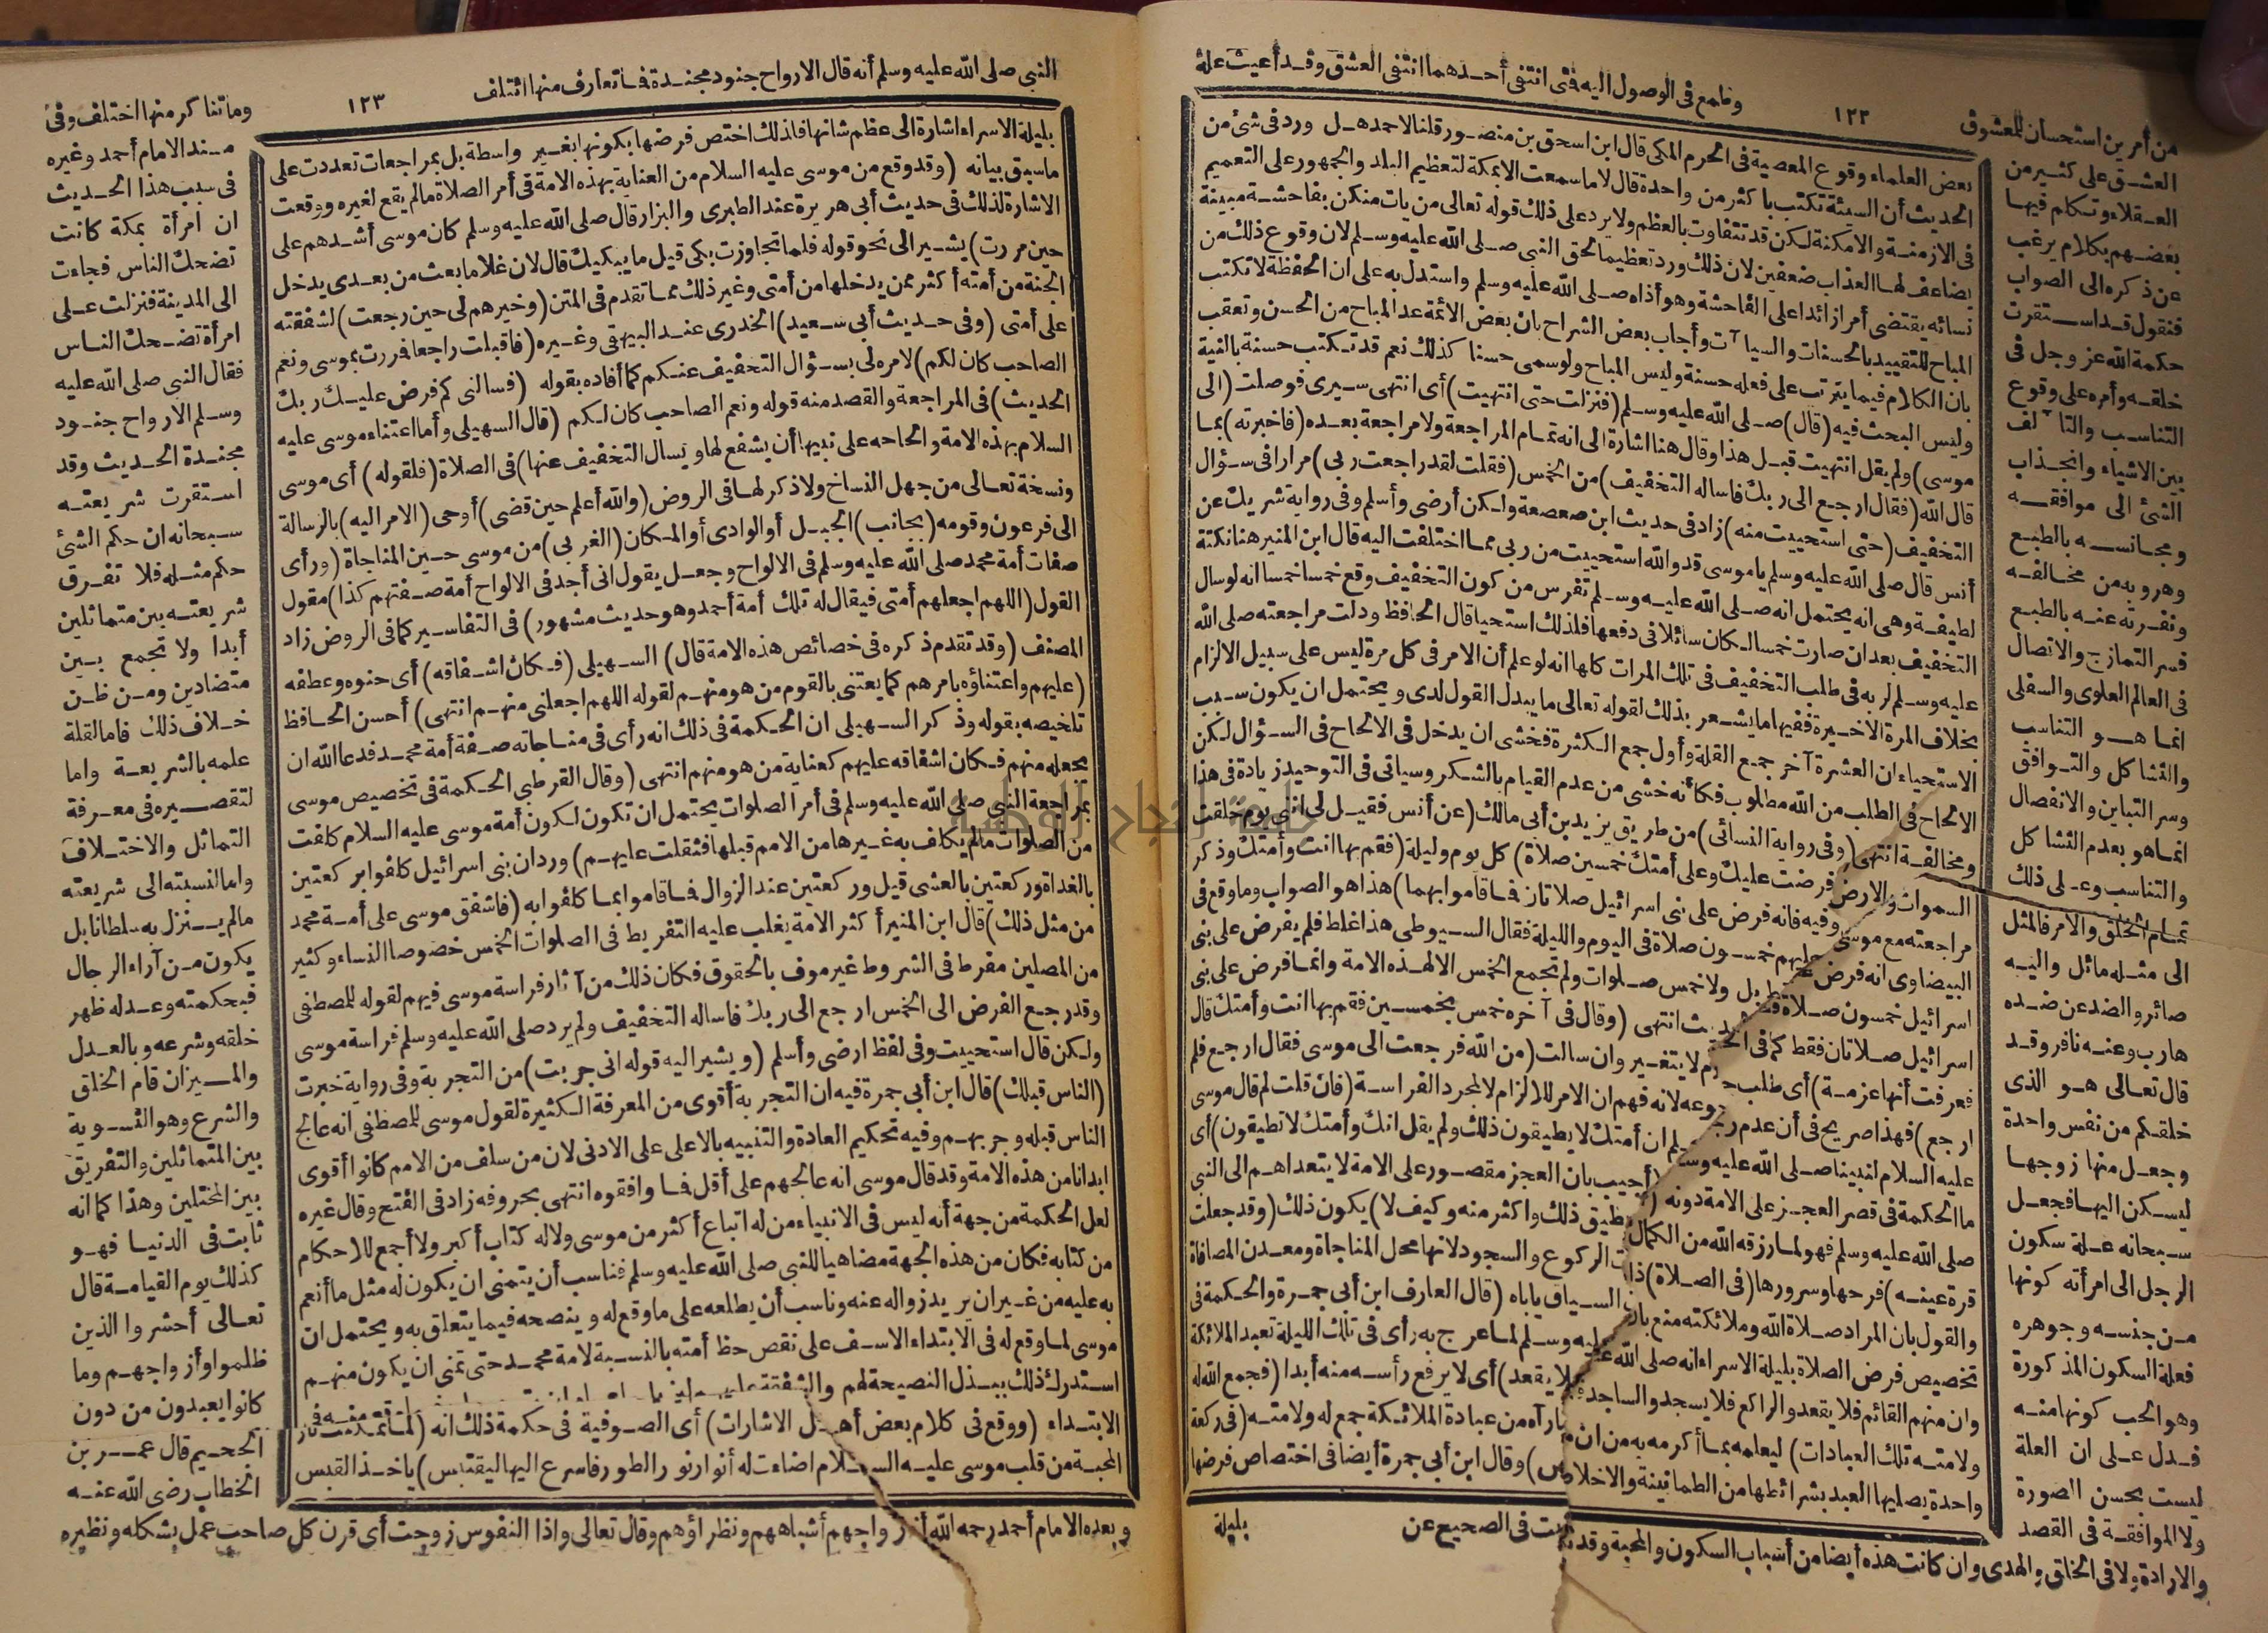 من أمرين استحسان للمعشوق
١٢٢
وطمع في الوصول اليه فتى انتفى أحدهما انتفى العشق وقد أعيت علة
العشق على كثير من
العقلاء وتكلم فيها
بعضهم بكلام يرغب
عن ذكره الى الصواب
فنقول قد استقرت
حكمة الله عز وجل في
خلقه وأمره على وقوع
التناسب والتآلف
بين الاشياء وانجذاب
الشئ الى موافقه
ومجانسه بالطبع
وهروبه من مخالفه
ونفرته عنه بالطبع
فسر التمازج والاتصال
في العالم العلوى والسفلى
انما هو التناسب
والتشاكل والتوافق
وسر التباين والانفصال
انما هو بعدم التشاكل
والتناسب وعلى ذلك
تمام الخلق والامر فالمثل
الى مثله مائل واليه
صائر والضد عن ضده
هارب وعنه نافر وقد
قال تعالى هو الذى
خلقكم من نفس واحدة
وجعل منها زوجها
ليسكن اليها فجعل
سبحانه علة سكون
الرجل الى امرأته كونها
من جنسه وجوهره
فعلة السكون المذكورة
وهو الحب كونها منه
فدل على ان العلة
ليست بحسن الصورة
ولا الموافقة في القصد
بعض العلماء وقوع المعصية في الحرم المكى قال ابن اسحق بن منصور قلنا لاحمد هل ورد في شئ من
الحديث أن السيئة تكتب باكثر من واحدة قال لا ما سمعت الا بمكة لتعظيم البلد والجمهور على التعميم
في الازمنة والامكنة لكن قد تتفاوت بالعظم ولا يرد على ذلك قوله تعالى من يات منكن بفاحشة مبينة
يضاعف لها العذاب ضعفين لان ذلك ورد تعظيما لحق النبى صلى الله عليه وسلم لان وقوع ذلك من
نسائه يقتضى أمرا زائدا على الفاحشة وهو أذاه صلى الله عليه وسلم واستدل به على ان الحفظة لا تكتب
المباح للتقييد بالحسنات والسيآت وأجاب بعض الشراح بان بعض الائمة عد المباح من الحسن وتعقب
بان الكلام فيما يترتب على فعله حسنة وليس المباح ولو سمى حسنا كذلك نعم قد تكتب حسنة بالنية
وليس البحث فيه (قال) صلى الله عليه وسلم (فنزلت حتى انتهيت) أى انتهى سيرى فوصلت (الى
موسى) ولم يقل انتهيت قبل هذا وقال هنا اشارة الى انه تمام المراجعة ولا مراجعة بعده (فاخبرته) بما
قال الله (فقال ارجع الى ربك فاساله التخفيف) من الخمس (فقلت لقد راجعت ربى) مرارا فى سؤال
التخفيف (حتى استحييت منه) زاد فى حديث ابن صعصعة ولكن أرضى وأسلم وفى رواية شريك عن
أنس قال صلى الله عليه وسلم يا موسى قد والله استحييت من ربى مما اختلفت اليه قال ابن المنير هنا نكتة
لطيفة وهى انه يحتمل انه صلى الله عليه وسلم تفرس من كون التخفيف وقع خمسا خمسا انه لو سال
التخفيف بعد ان صارت خمسا لكان سائلا فى دفعها فلذلك استحيا قال الحافظ ودلت مراجعته صلى الله
عليه وسلم لربه فى طلب التخفيف فى تلك المرات كلها انه لو علم أن الامر فى كل مرة ليس على سبيل الالزام
بخلاف المرة الاخيرة ففيها ما يشعر بذلك لقوله تعالى ما يبدل القول لدى ويحتمل ان يكون سبب
الاستحياء ان العشرة آخر جمع القلة وأول جمع الكثرة فخشى ان يدخل فى الالحاح فى السؤال لكن
الالحاح فى الطلب من الله مطلوب فكأنه خشى من عدم القيام بالشكر وسياتى فى التوحيد زيادة فى هذا
ومخالفة انتهى (وفى رواية النسائى) من طريق يزيد بن أبى مالك (عن أنس فقيل لى انى يوم خلقت
السموات والارض فرضت عليك وعلى أمتك خمسين صلاة) كل يوم وليلة (فقم بها انت وأمتك وذكر
مراجعته مع موسى وفيه فانه فرض على بنى اسرائيل صلاتان فما قاموا بهما) هذا هو الصواب وما وقع فى
البيضاوى انه فرض عليهم خمسون صلاة فى اليوم والليلة فقال السيوطى هذا غلط فلم يفرض على بنى
اسرائيل خمسون صلاة قط بل ولا خمس صلوات ولم تجمع الخمس الا لهذه الامة وانما فرض على بنى
اسرائيل صلاتان فقط كما فى الحديث انتهى (وقال فى آخره خمس بخمسين فقم بها انت وأمتك قال
فعرفت أنها عزمة) أى طلب لا يتغير وان سالت (من الله فرجعت الى موسى فقال ارجع فلم
ارجع) فهذا صريح فى أن عدم رجوعه لانه فهم ان الامر للالزام لا لمجرد الفراسة (فان قلت لم قال موسى
عليه السلام لنبينا صلى الله عليه وسلم ان أمتك لا يطيقون ذلك ولم يقل انك وأمتك لا تطيقون) أى
ما الحكمة فى قصر العجز على الامة دونه (أجيب بان العجز مقصور على الامة لا يتعداهم الى النبى
صلى الله عليه وسلم فهو لما رزقه الله من الكمال يطيق ذلك واكثر منه وكيف لا) يكون ذلك (وقد جعلت
قرة عينه) فرحها وسرورها (فى الصلاة) ذات الركوع والسجود لانها محل المناجاة ومعدن المصافاة
والقول بان المراد صلاة الله وملائكته منع بان السياق ياباه (قال العارف ابن أبى جمرة والحكمة فى
تخصيص فرض الصلاة بليلة الاسراء انه صلى الله عليه وسلم لما عرج به رأى فى تلك الليلة تعبد الملائكة
وان منهم القائم فلا يقعد والراكع فلا يسجد والساجد فلا يقعد) أى لا يرفع رأسه منه أبدا (فجمع الله له
ولامته تلك العبادات) ليعلمه بما أكرمه به من ان ما رآه من عبادة الملائكة جمع له ولامته (فى ركعة
واحدة يصليها العبد بشرائطها من الطمانينة والاخلاص) وقال ابن أبى جمرة أيضا فى اختصاص فرضها
والارادة ولا فى الخلق والهدى وان كانت هذه أيضا من أسباب السكون والمحبة وقد ثبت فى الصحيح عن
بليلة
النبى صلى الله عليه وسلم أنه قال الارواح جنود مجندة فما تعارف منها ائتلف
١٢٣
وما تناكر منها اختلف وفى
مسند الامام أحمد وغيره
فى سبب هذا الحديث
ان امرأة بمكة كانت
تضحك الناس فجاءت
الى المدينة فنزلت على
امرأة تضحك الناس
فقال النبى صلى الله عليه
وسلم الارواح جنود
مجندة الحديث وقد
استقرت شريعته
سبحانه ان حكم الشئ
حكم مثله فلا تفرق
شريعته بين متماثلين
أبدا ولا تجمع بين
متضادين ومن ظن
خلاف ذلك فاما لقلة
علمه بالشريعة واما
لتقصيره فى معرفة
التماثل والاختلاف
واما لنسبته الى شريعته
ما لم ينزل به سلطانا بل
يكون من آراء الرجال
فبحكمته وعدله ظهر
خلقه وشرعه وبالعدل
والميزان قام الخلق
والشرع وهو التسوية
بين المتماثلين والتفريق
بين المختلين وهذا كما انه
ثابت فى الدنيا فهو
كذلك يوم القيامة قال
تعالى أحشروا الذين
ظلموا وأزواجهم وما
كانوا يعبدون من دون
الجحيم قال عمر بن
الخطاب رضى الله عنه
بليلة الاسراء اشارة الى عظم شانها فلذلك اختص فرضها بكونها بغير واسطة بل بمراجعات تعددت على
ما سبق بيانه (وقد وقع من موسى عليه السلام من العناية بهذه الامة فى أمر الصلاة ما لم يقع لغيره ووقعت
الاشارة لذلك فى حديث أبى هريرة عند الطبرى والبزار قال صلى الله عليه وسلم كان موسى أشدهم على
حين مررت) يشير الى نحو قوله فلما تجاوزت بكى قيل ما يبكيك قال لان غلاما بعث من بعدى يدخل
الجنة من أمته أكثر ممن يدخلها من أمتى وغير ذلك مما تقدم فى المتن (وخيرهم لى حين رجعت) لشفقته
على أمتى (وفى حديث أبى سعيد) الخدرى عند البيهقى وغيره (فاقبلت راجعا فمررت بموسى ونعم
الصاحب كان لكم) لامره لى بسؤال التخفيف عنكم كما أفاده بقوله (فسالنى كم فرض عليك ربك
الحديث) فى المراجعة والقصد منه قوله ونعم الصاحب كان لكم (قال السهيلى وأما اعتناء موسى عليه
السلام بهذه الامة والحاحه على نبيها أن يشفع لها ويسال التخفيف عنها) فى الصلاة (فلقوله) أى موسى
ونسخة تعالى من جهل النساخ ولا ذكر لها فى الروض (والله أعلم حين قضى) أوحى (الامر اليه) بالرسالة
الى فرعون وقومه (بجانب) الجبل أو الوادى أو المكان (الغربى) من موسى حين المناجاة (ورأى
صفات أمة محمد صلى الله عليه وسلم فى الالواح وجعل يقول انى أجد فى الالواح أمة صفتهم كذا) مقول
القول (اللهم اجعلهم أمتى فيقال له تلك أمة أحمد وهو حديث مشهور) فى التفاسير كما فى الروض زاد
المصنف (وقد تقدم ذكره فى خصائص هذه الامة قال) السهيلى (فكان اشفاقه) أى حنوه وعطفه
(عليهم واعتناؤه بامرهم كما يعتنى بالقوم من هو منهم لقوله اللهم اجعلنى منهم انتهى) أحسن الحافظ
تلخيصه بقوله وذكر السهيلى ان الحكمة فى ذلك انه رأى فى مناجاته صفة أمة محمد فدعا الله ان
يجعله منهم فكان اشفاقه عليهم كعناية من هو منهم انتهى (وقال القرطبى الحكمة فى تخصيص موسى
بمراجعة النبى صلى الله عليه وسلم فى أمر الصلوات يحتمل ان تكون لكون أمة موسى عليه السلام كلفت
من الصلوات ما لم يكلف به غيرها من الامم قبلها فثقلت عليهم) ورد ان بنى اسرائيل كلفوا بركعتين
بالغداة وركعتين بالعشى قيل وركعتين عند الزوال فما قاموا بما كلفوا به (فاشفق موسى على أمة محمد
من مثل ذلك) قال ابن المنير أكثر الامة يغلب عليه التفريط فى الصلوات الخمس خصوصا النساء وكثير
من المصلين مفرط فى الشروط غير موف بالحقوق فكان ذلك من آثار فراسة موسى فيهم لقوله للمصطفى
وقد رجع الفرض الى الخمس ارجع الى ربك فاساله التخفيف ولم يرد صلى الله عليه وسلم فراسة موسى
ولكن قال استحييت وفى لفظ ارضى وأسلم (ويشير اليه قوله انى جربت) من التجربة وفى رواية خبرت
(الناس قبلك) قال ابن أبى جمرة فيه ان التجربة أقوى من المعرفة الكثيرة لقول موسى للمصطفى انه عالج
الناس قبله وجربهم وفيه تحكيم العادة والتنبيه بالاعلى على الادنى لان من سلف من الامم كانوا أقوى
ابدانا من هذه الامة وقد قال موسى انه عالجهم على أقل فما وافقوه انتهى بحروفه زاد فى الفتح وقال غيره
لعل الحكمة من جهة أنه ليس فى الانبياء من له اتباع أكثر من موسى ولا له كتاب أكبر ولا أجمع للاحكام
من كتابه فكان من هذه الجهة مضاهيا للنبى صلى الله عليه وسلم فناسب أن يتمنى ان يكون له مثل ما أنعم
به عليه من غير ان يريد زواله عنه وناسب أن يطلعه على ما وقع له وينصحه فيما يتعلق به ويحتمل ان
موسى لما وقع له فى الابتداء الاسف على نقص حظ أمته بالنسبة لامة محمد حتى تمنى ان يكون منهم
استدرك ذلك ببذل النصيحة لهم والشفقة عليهم
الابتداء (ووقع فى كلام بعض أهل الاشارات) أى الصوفية فى حكمة ذلك انه (لما تمكنت نار
المحبة من قلب موسى عليه السلام اضاءت له أنوار نور الطور فاسرع اليها ليقتبس) ياخذ القبس
وبعده الامام أحمد رحمه الله أزواجهم أشباههم ونظراؤهم وقال تعالى واذا النفوس زوجت أى قرن كل صاحب عمل بشكله ونظيره